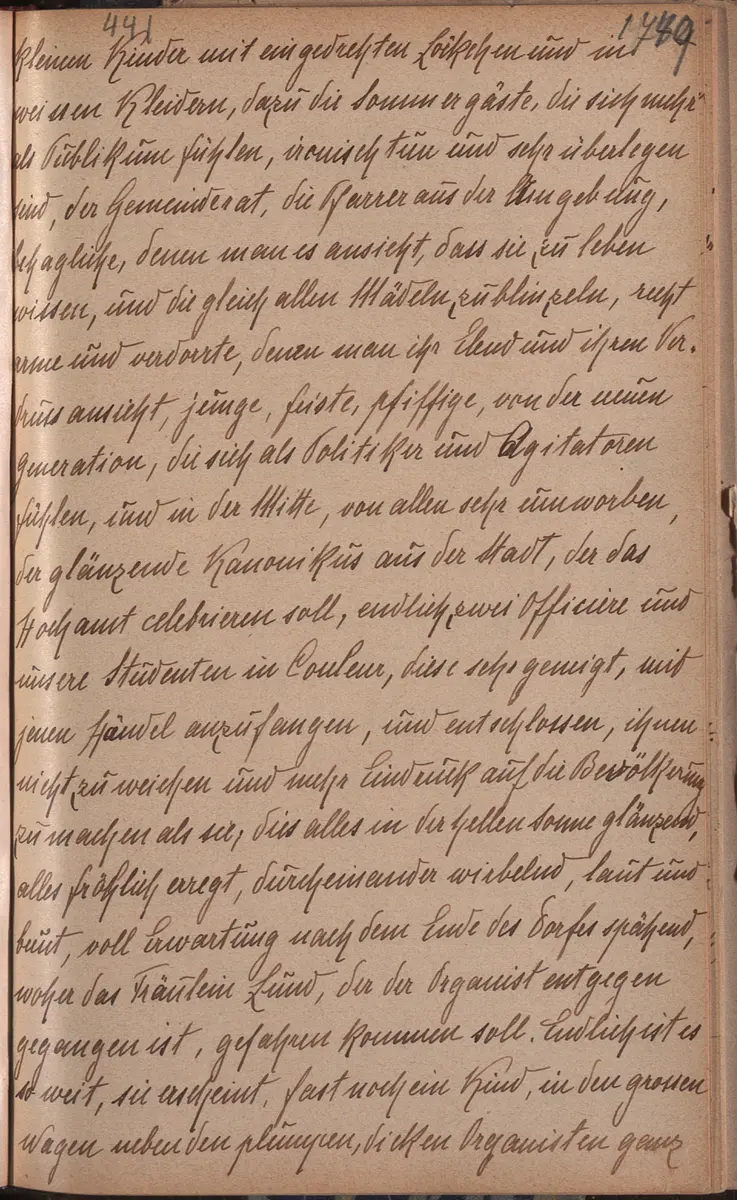 441 1789
kleinen Kinder mit eingedrehten Löckchen und in
weissen Kleidern, dazu die Sommergäste, die sich mehr
als Publikum fühlen, ironisch tun und sehr überlegen
sind, der Gemeinderat, die Pfarrer aus der Umgebung,
behagliche, denen man es ansieht, dass sie zu leben
wissen, und die gleich allen Mädeln zublinzeln, recht
arme und verdorrte, denen man ihr Elend und ihren Ver-
druss ansieht, junge, feiste, pfiffige, von der neuen
Generation, die sich als Politiker und Agitatoren
fühlen, und in der Mitte, von allen sehr umworben,
der glänzende Kanonikus aus der Stadt, der das
Hochamt celebrieren soll, endlich zwei Officiere und
unsere Studenten in Couleur, diese sehr geneigt, mit
jenen Händel anzufangen, und entschlossen, ihnen
nicht zu weichen und mehr Eindruck auf die Bevölkerung
zu machen als sie; dies alles in der hellen Sonne glänzend,
alles fröhlich erregt, durcheinander wirbelnd, laut und
bunt, voll Erwartung nach dem Ende des Dorfes spähend,
woher das Fräulein Lund, der der Organist entgegen
gegangen ist, gefahren kommen soll. Endlich ist es
so weit, sie erscheint, fast noch ein Kind, in den grossen
Wagen neben den plumpen, dicken Organisten ganz